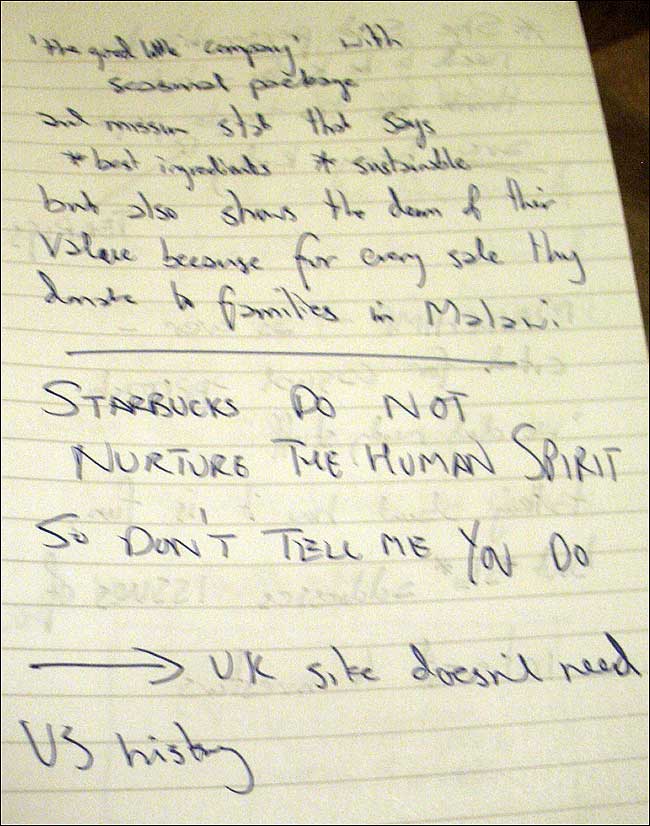 'the good little company' with
seasonal package
and mission stat that says
* best ingredients * sustainable
but also shows the down of their
value because for every sale they
donate to families in Malawi.
STARBUCKS DO NOT
NURTURE THE HUMAN SPIRIT
SO DON'T TELL ME YOU DO
→ UK site doesn't need
US history